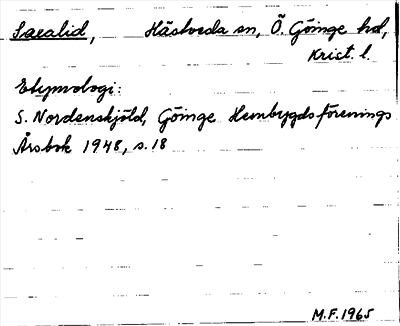 Saxalid, Hästveda sn, Ö. Göinge hd,
Krist. l.
Etymologi:
S. Nordenskjöld, Göinge Hembygdsförenings
Årsbok 1948, s. 18
M.F. 1965